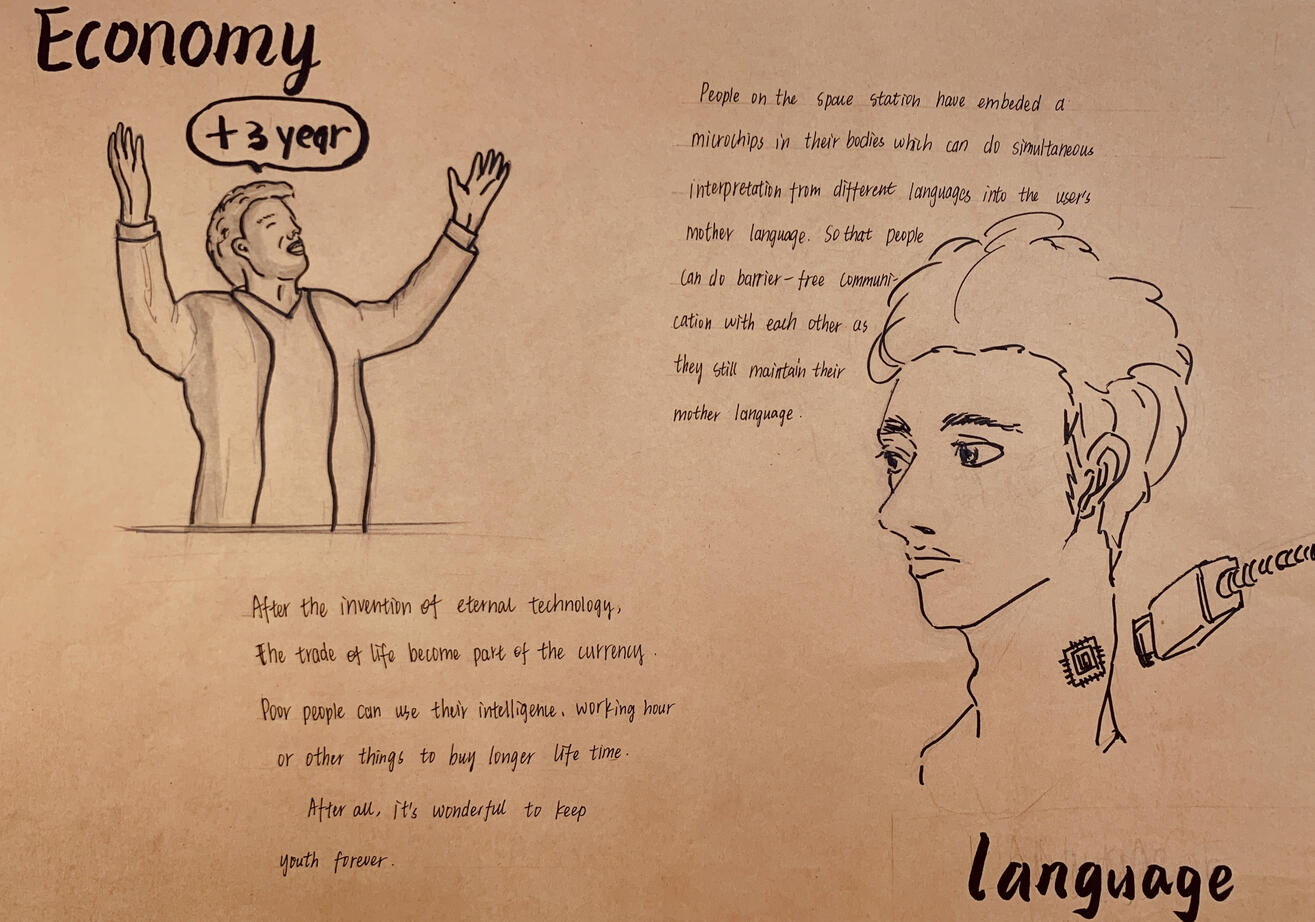 Economy
+3 year
After the invention of eternal technology,
The trade of life become part of the currency.
Poor people can use their intelligence, working hour
or other things to buy longer life time.
After all, it's wonderful to keep
youth forever.
People on the space station have embeded a
microchips in their bodies which can do simultaneous
interpretation from different languages into the user's
mother language. So that people
can do barrier-free communi-
cation with each other as
they still maintain their
mother language.
language